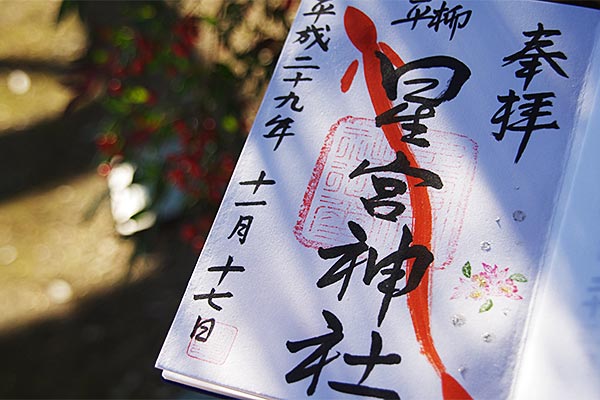 奉拝
平柳
星宮神社
平成二十九年
十一月十七日